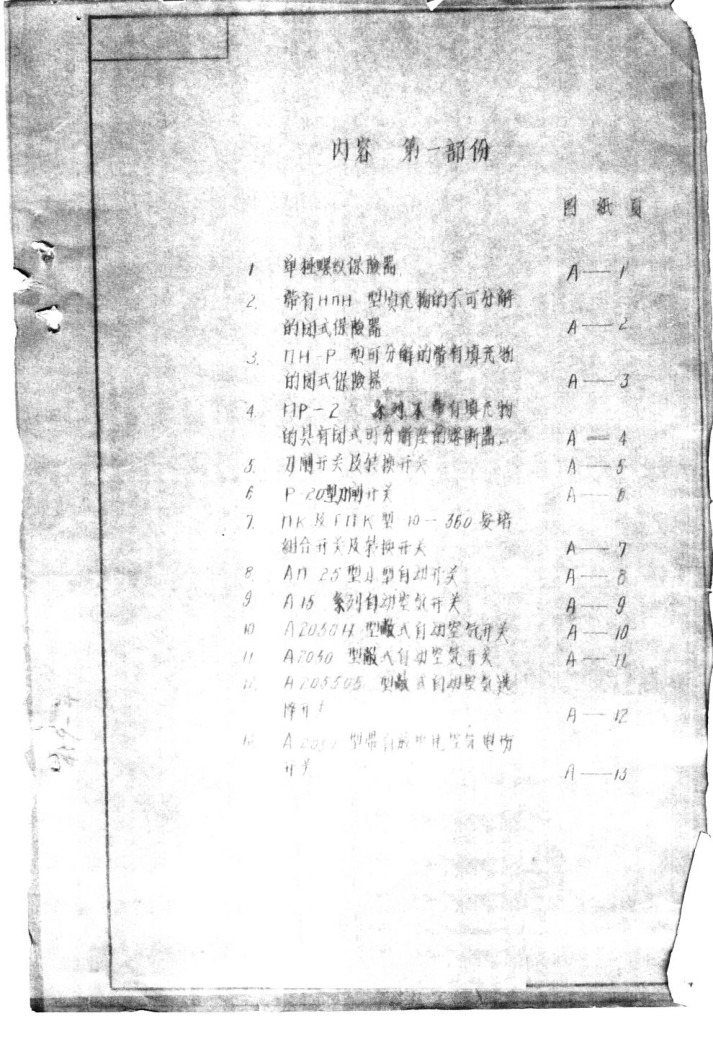 内容 第一部份
图 紙 頁
1 单极螺纹保險器 A—1
2. 帶有НПН 型填充物的不可分解
的闭式保險器 A—2
3. ПН-Р 型可分解的帶有填充物
的闭式保險器 A—3
4. ПР-2 系列不帶有填充物
的具有闭式可分解座的熔断器 A—4
5. 刀閘开关及转换开关 A—5
6 Р-20型刀閘开关 A—6
7. ПК及ГПК型 10—360安培
組合开关及转换开关 A—7
8. АП-25型小型自动开关 A—8
9 А15 系列自动空气开关 A—9
10 А2050Н 型敞式自动空气开关 A—10
11 А2050 型敞式自动空气开关 A—11
12. 型敞式自动空气選
擇开关 A—12
13. 型帶有
开关 A—13